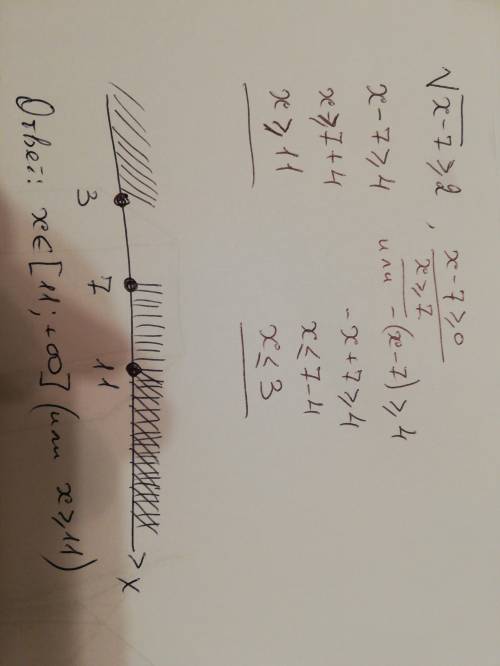 √x-7 ⩾ 2, x-7⩾0
x⩾7
x-7⩾4 или -(x-7)⩾4
x⩾7+4 -x+7⩾4
x⩾11 x≤7-4
x≤3
3 7 11 x
Ответ: x∈[11;+∞] (или x⩾11)